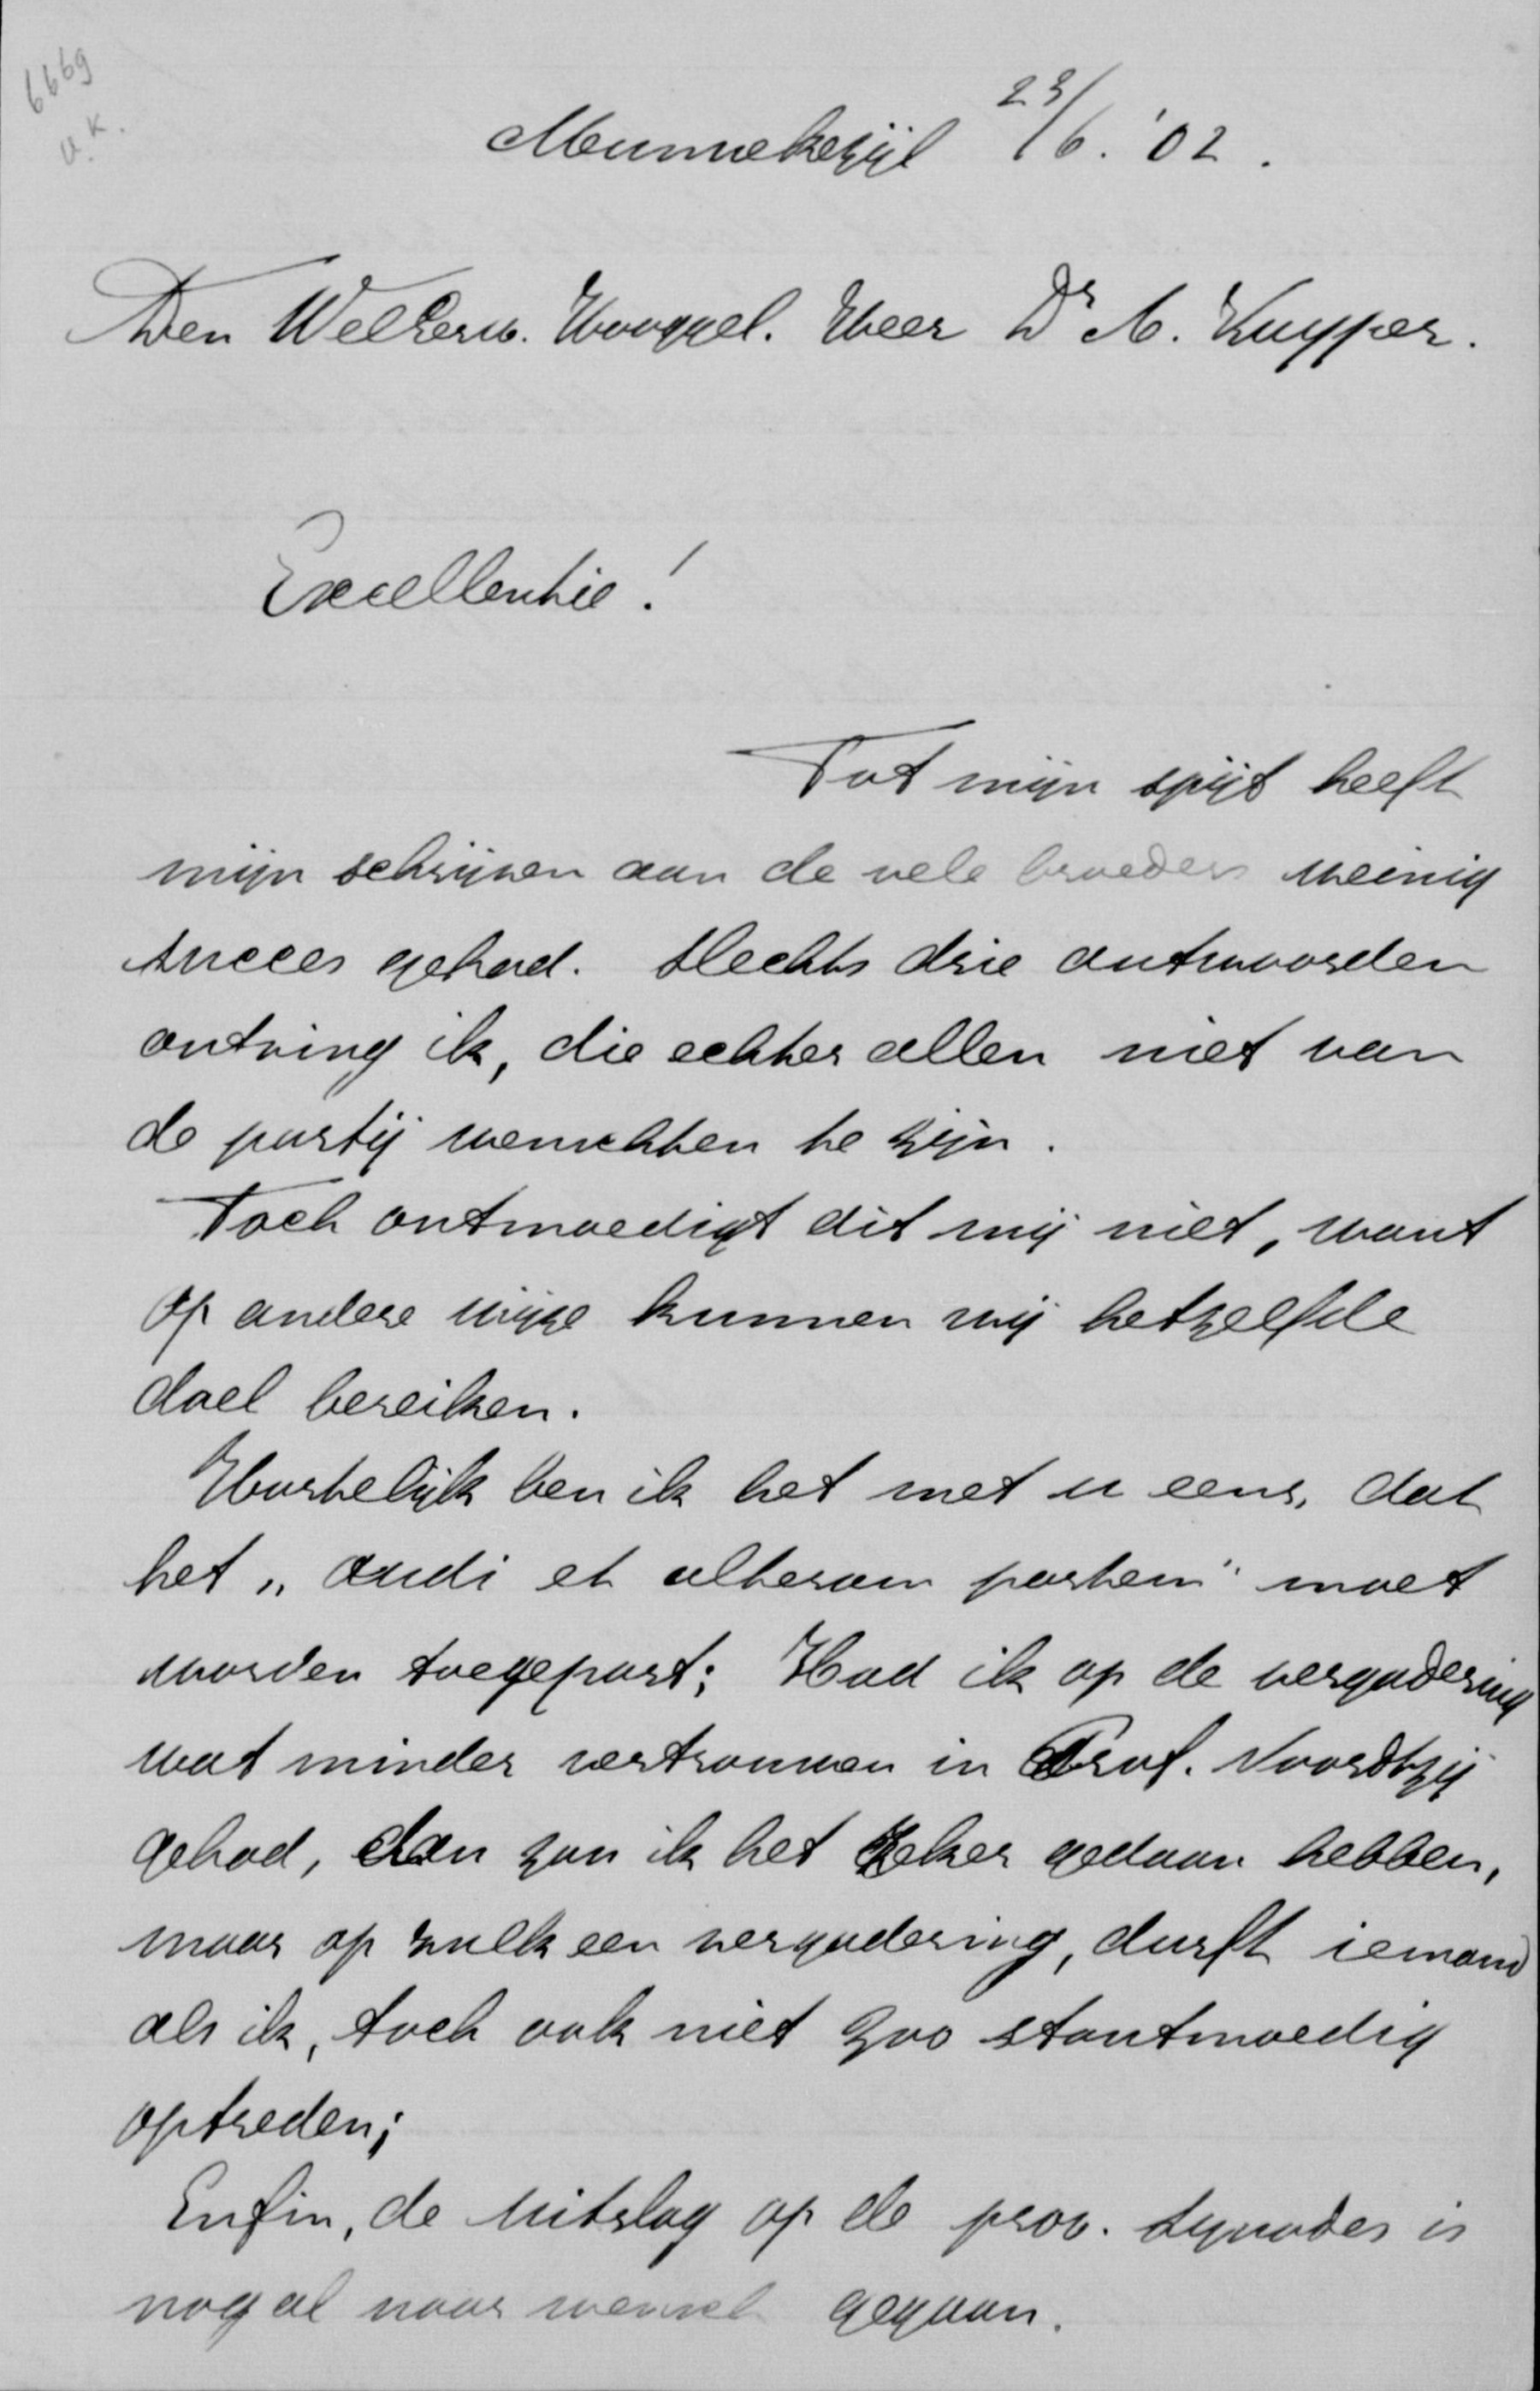 6669
v.K.
Munnekezijl 23/6. '02.
Den WelEerw. Hooggel. Heer Dr A. Kuyper.
Excellentie!
Tot mijn spijt heeft
mijn schrijven aan de vele broeders weinig
succes gehad. Slechts drie antwoorden
ontving ik, die echter allen niet van
de partij wenschten te zijn.
Toch ontmoedigt dit mij niet, want
op andere wijze kunnen wij hetzelfde
doel bereiken.
Hartelijk ben ik het met u eens, dat
het "audi et alteram partem" moet
worden toegepast; Had ik op de vergadering
wat minder vertrouwen in Prof. Noordtzij
gehad, dan zou ik het zeker gedaan hebben,
maar op zulk een vergadering, durft iemand
als ik, toch ook niet zoo stoutmoedig
optreden;
Enfin, de uitslag op de prov. synodes is
nog al naar wensch gegaan.